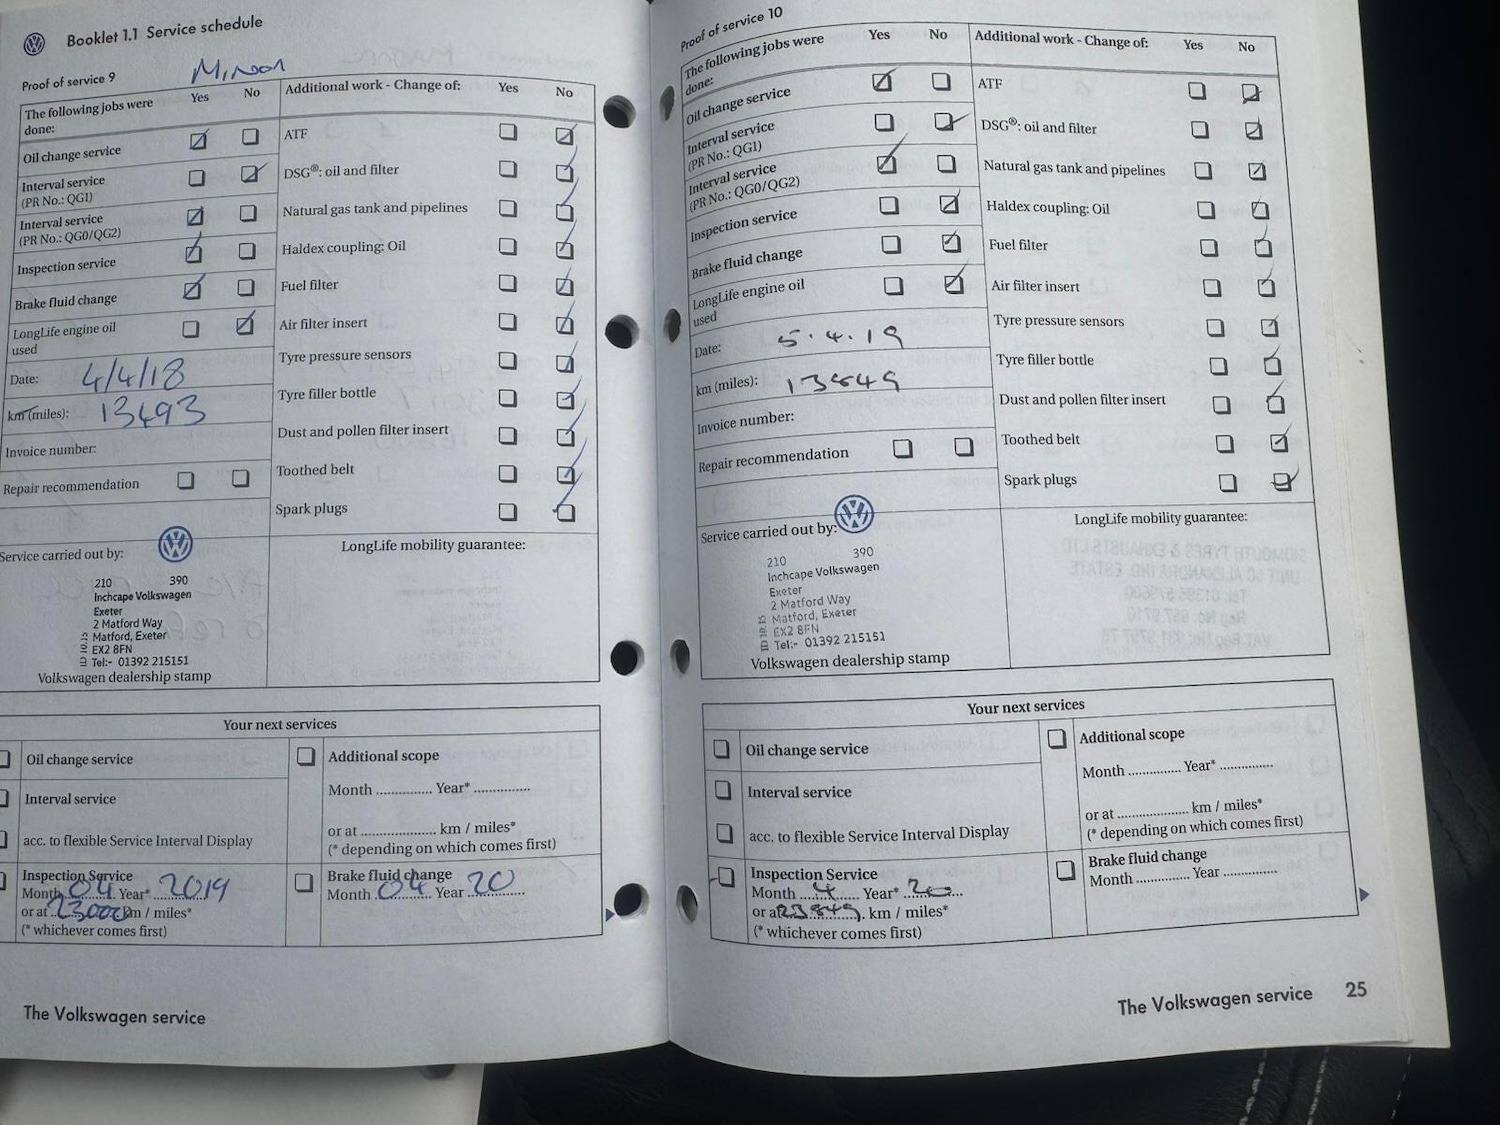 Booklet 1.1 Service schedule
Proof of service 9
Minor
The following jobs were done:
Yes No
Additional work - Change of:
Yes No
Oil change service
Interval service
(PR No.: QG1)
Interval service
(PR No.: QG0/QG2)
Inspection service
Brake fluid change
LongLife engine oil
used
Date: 4/4/18
km (miles): 13493
Invoice number:
Repair recommendation
ATF
DSG®: oil and filter
Natural gas tank and pipelines
Haldex coupling: Oil
Fuel filter
Air filter insert
Tyre pressure sensors
Tyre filler bottle
Dust and pollen filter insert
Toothed belt
Spark plugs
Service carried out by:
210 390
Inchcape Volkswagen
Exeter
2 Matford Way
Matford, Exeter
EX2 8FN
Tel:- 01392 215151
Volkswagen dealership stamp
LongLife mobility guarantee:
Your next services
Oil change service
Interval service
acc. to flexible Service Interval Display
Inspection Service
Month 04 Year* 2019
or at 23000 km / miles*
(* whichever comes first)
Additional scope
Month .............. Year* ..............
or at .................... km / miles*
(* depending on which comes first)
Brake fluid change
Month 04 Year 20
The Volkswagen service
Proof of service 10
The following jobs were
done:
Yes No
Additional work - Change of:
Yes No
Oil change service
Interval service
(PR No.: QG1)
Interval service
(PR No.: QG0/QG2)
Inspection service
Brake fluid change
LongLife engine oil
used
Date: 5.4.19
km (miles): 13849
Invoice number:
Repair recommendation
ATF
DSG®: oil and filter
Natural gas tank and pipelines
Haldex coupling: Oil
Fuel filter
Air filter insert
Tyre pressure sensors
Tyre filler bottle
Dust and pollen filter insert
Toothed belt
Spark plugs
Service carried out by:
210 390
Inchcape Volkswagen
Exeter
2 Matford Way
Matford, Exeter
EX2 8FN
Tel:- 01392 215151
Volkswagen dealership stamp
LongLife mobility guarantee:
Your next services
Oil change service
Interval service
acc. to flexible Service Interval Display
Inspection Service
Month 4 Year* 20
or at 23849 km / miles*
(* whichever comes first)
Additional scope
Month .............. Year* ..............
or at .................... km / miles*
(* depending on which comes first)
Brake fluid change
Month .............. Year ..............
The Volkswagen service 25